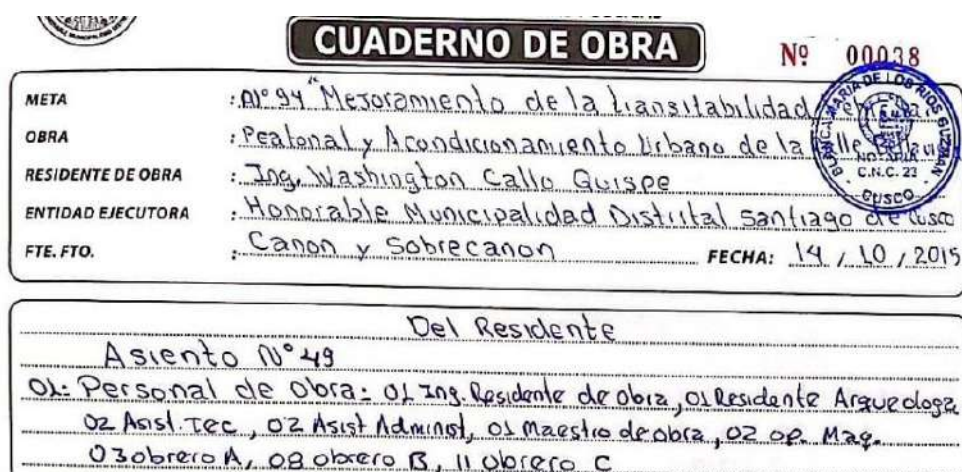 CUADERNO DE OBRA
Nº 00038
META : Nº 94 "Mejoramiento de la transitabilidad
OBRA : Peatonal y Acondicionamiento Urbano de la Calle
RESIDENTE DE OBRA : Ing. Washington Callo Quispe
ENTIDAD EJECUTORA : Honorable Municipalidad Distrital Santiago de Cusco
FTE. FTO. : Canon y Sobrecanon FECHA: 14 / 10 / 2015
BLANCA MARIA DE LOS RIOS GUZMAN
NOTARIA
C.N.C. 23
CUSCO
Del Residente
Asiento Nº 49
01: Personal de Obra: 01 Ing. Residente de obra, 01 Residente Arqueologa
02 Asist. Tec, 02 Asist Administ, 01 Maestro de obra, 02 op. Maq.
03 obrero A, 08 obrero B, 11 obrero C